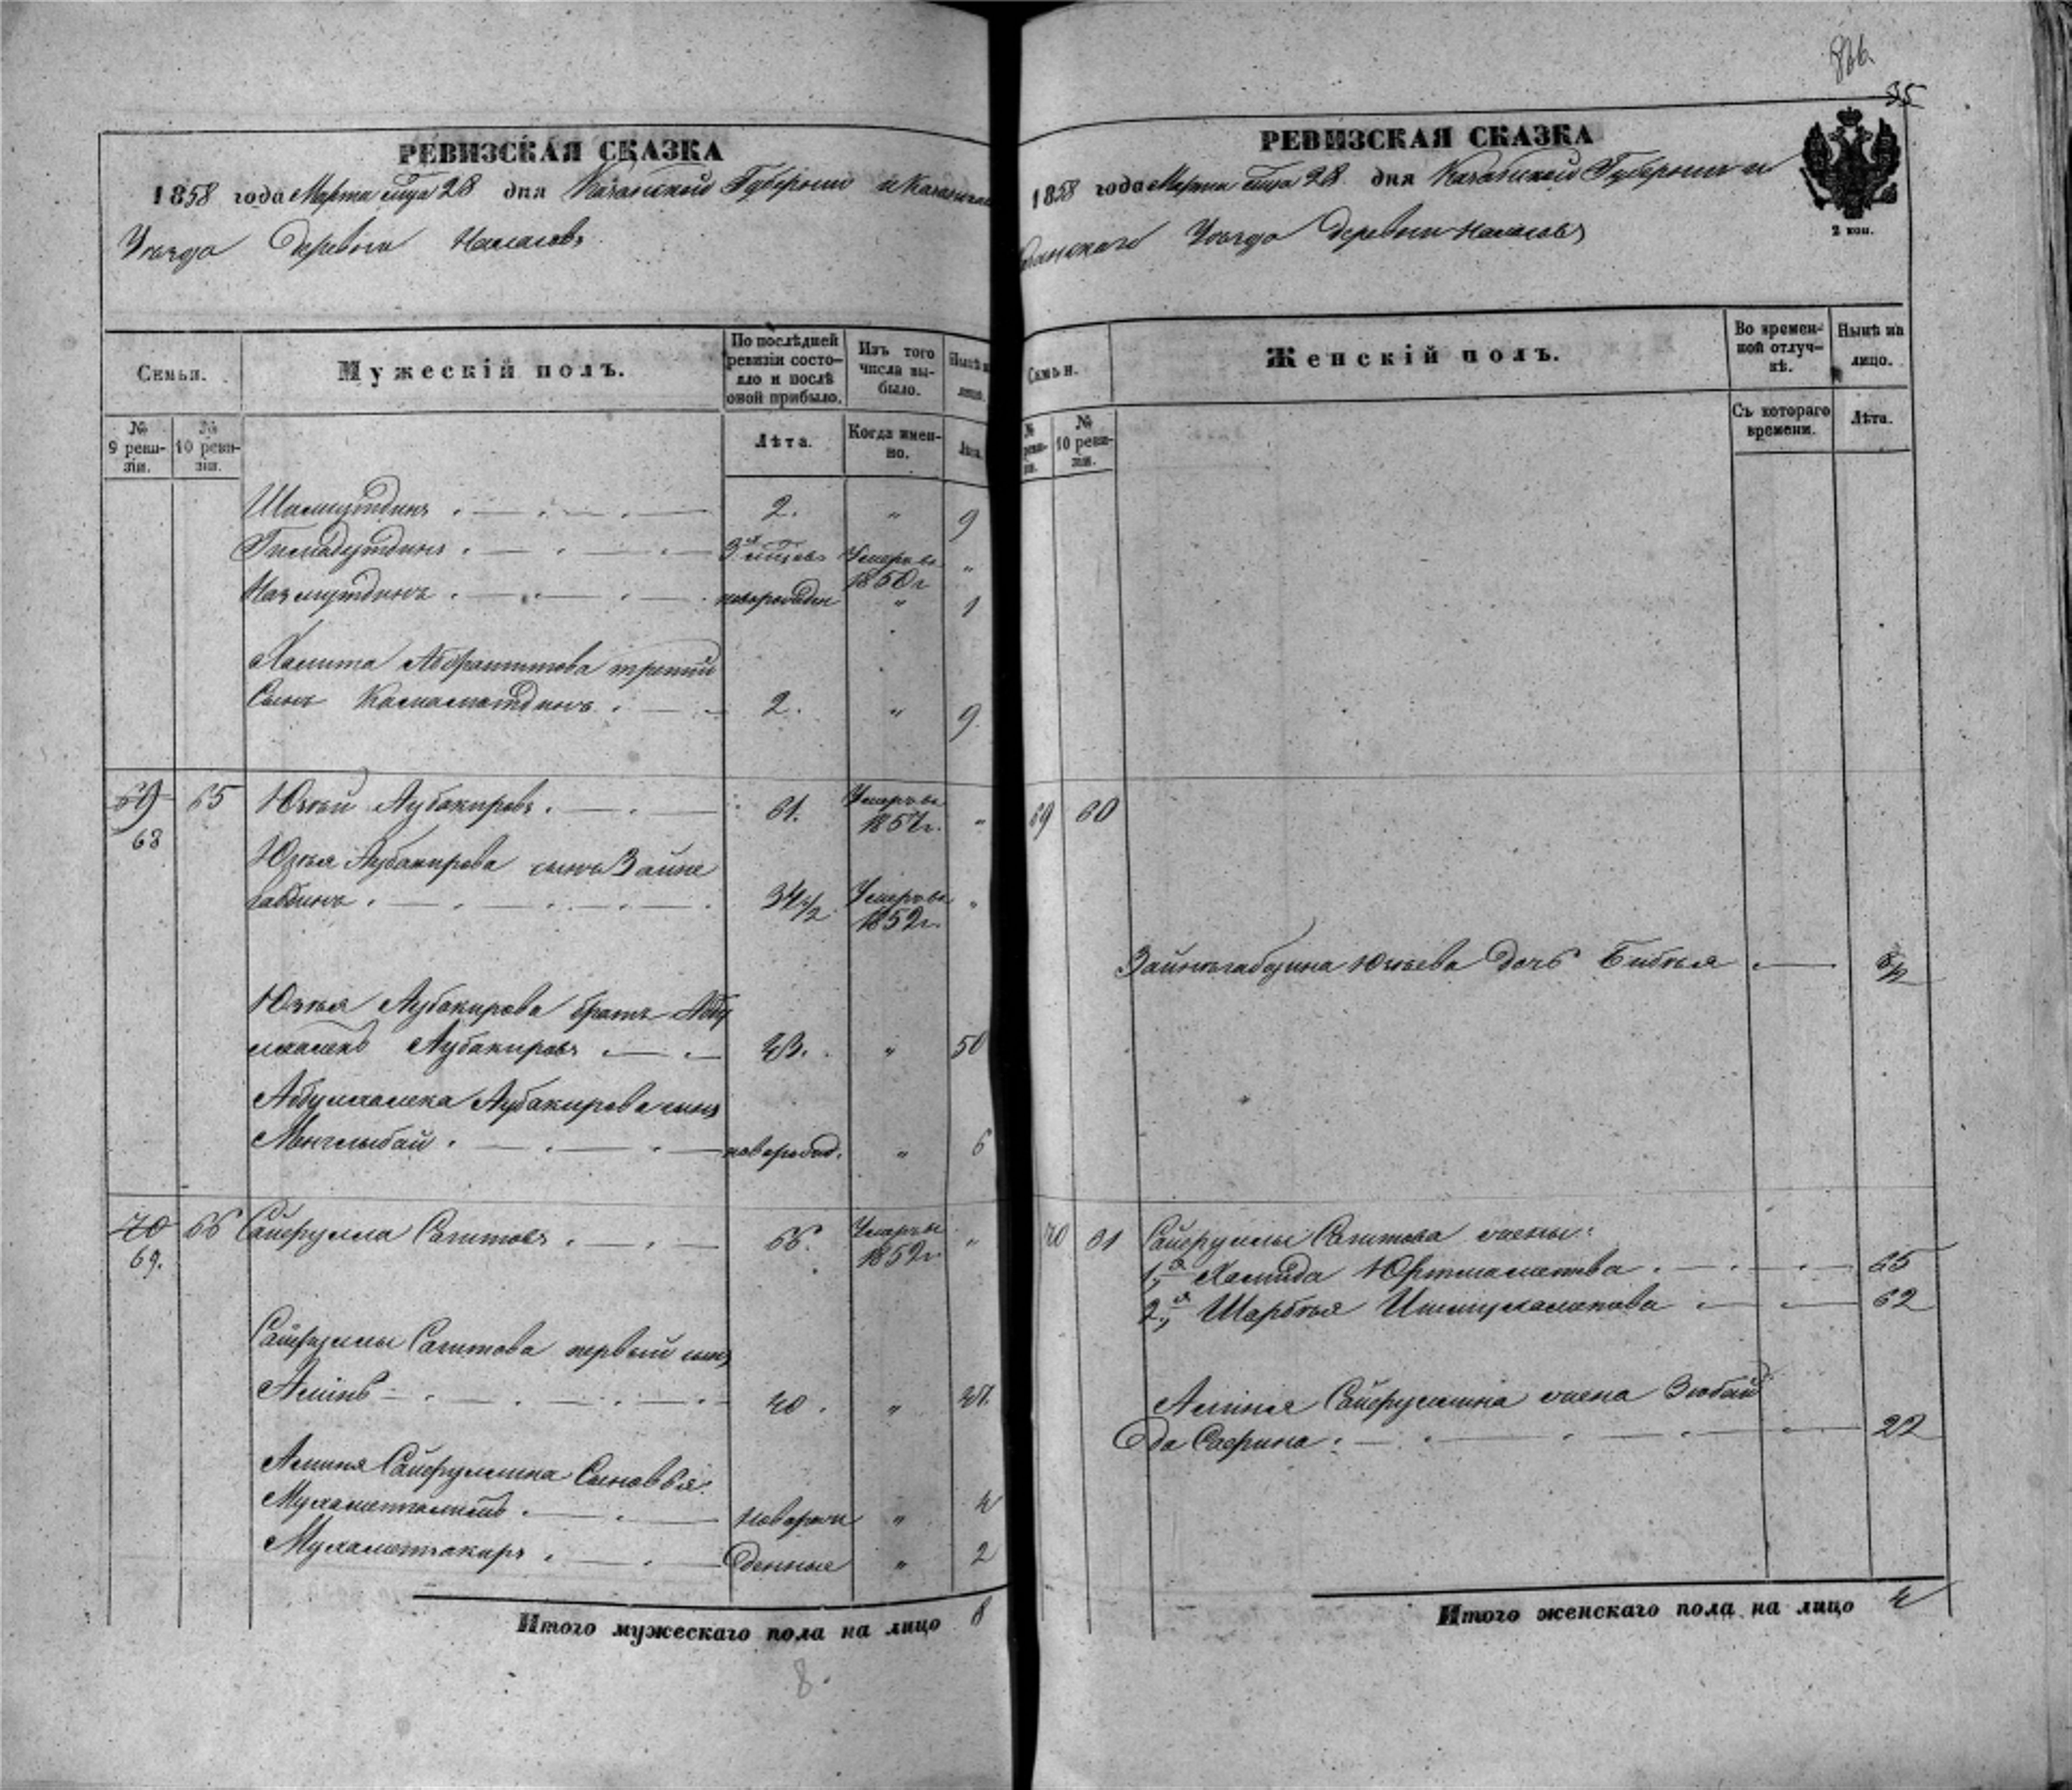 836.
35
РЕВИЗСКАЯ СКАЗКА
1858 года Марта мца 28 дня Казанской Губернии и Казанскаго
Уезда деревни
Семьи.
Мужескій полъ.
По послѣдней ревизіи состояло и послѣ оной прибыло.
Изъ того числа выбыло.
Нынѣ на лицо.
№ 9 ревизіи.
№ 10 ревизіи.
Лѣта.
Когда именно.
Лѣта.
Шамсутдинъ 2. " 9
Гимадутдинъ 3х мцовъ Умеръ въ 1850г "
Назмутдинъ новорожден " 1
Хамита Абдрашитова третий
Сынъ Камаметдинъ 2. " 9.
69 65 Юзей Аубакировъ 61. Умеръ въ 1857г. "
68
Юзея Аубакирова сынъ Зайне
габдинъ 34 1/2 Умеръ въ 1852г. "
Юзея Аубакирова братъ Абду
Аубакировъ 43. " 50
Аубакирова сынъ
Мынглыбай новорожд. " 6
70 66 Сайфулла Сагитовъ 66. Умеръ въ 1852г. "
69.
Сайфуллы Сагитова первый сынъ
Аминъ 40. " 47.
Аминя Сайфуллина Сыновья:
новорож " 4
Мухаметзакиръ денные " 2
Итого мужескаго пола на лицо 8
8.
РЕВИЗСКАЯ СКАЗКА
1858 года Марта мца 28 дня Казанской Губернии и
Казанскаго Уезда деревни
2 коп.
Семьи.
Женскій полъ.
Во временной отлучкѣ.
Нынѣ на лицо.
№ ревизіи.
№ 10 ревизіи.
Съ котораго времени.
Лѣта.
69 60
Зайнегабдина Юзеева дочь Бибея
70 61 Сайфуллы Сагитова жены:
1я Хамида 65
2я Шарбея 62
Аминя Сайфуллина жена Зюбай
да Сафина 22
Итого женскаго пола на лицо 4